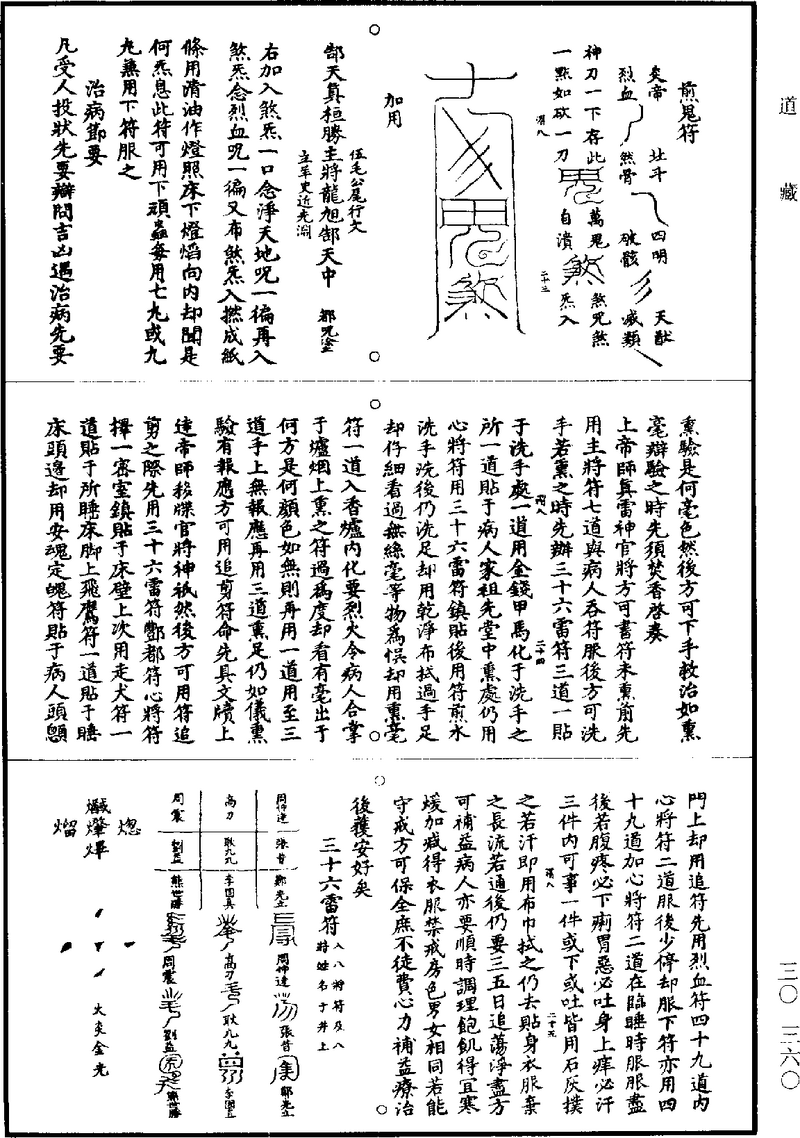 道藏
煎鬼符
炎帝 北斗 四明 天猷
烈血 然骨 破骸 滅類
神刀一下存此 萬鬼 煞咒煞
一點如砍一刀 鬼 自潰 煞 炁入
加用
伍毛公尾行文
郜天真桓勝主將龍旭郜天中 都咒塗
右加入煞炁一口念淨天地呪一徧再入
煞炁念烈血呪一徧又布煞炁入撚成紙
條用清油作燈照床下燈焰向内却聞是
何炁息此符可用下頑蟲每用七九或九
九無用下符服之
治病節要
凡受人投狀先要辯問吉凶遇治病先要
熏驗是何毫色然後方可下手救治如熏
毫辯驗之時先須焚香啓奏
上帝師真雷神官將方可書符未熏前先
用主將符七道與病人吞符服後方可洗
手若熏之時先辦三十六雷符三道一貼
于洗手處一道用金錢甲馬化于洗手之
所一道貼于病人家祖先堂中熏處仍用
心將符用三十六雷符鎮貼後用符煎水
洗手洗後仍洗足却用乾淨布拭過手足
却仔細看過無絲毫等物爲悞却用熏毫
符一道入香爐内化要烈火令病人合掌
于爐烟上熏之符過爲度却看有毫出于
何方是何顔色如無則再用一道用至三
道手上無報應再用三道熏足仍如儀熏
驗有報應方可用追剪符命先具文牒上
達帝師移牒官將神祇然後方可用符追
剪之際先用三十六雷符酆都符心將符
擇一密室鎮貼于床壁上次用走犬符一
道貼于所睡床脚上飛鷹符一道貼于睡
床頭邊却用安魂定魄符貼于病人頭顖
門上却用追符先用烈血符四十九道内
心將符二道服後少停却服下符亦用四
十九道加心將符二道在臨睡時服服盡
後若腹疼必下痢胃惡必吐身上痒必汗
三件内可事一件或下或吐皆用石灰撲
之若汗即用布巾拭之仍去貼身衣服棄
之長流若通後仍要三五日追蕩淨盡方
可補益病人亦要順時調理飽飢得宜寒
煖加減得衣服禁戒房色男女相同若能
守戒方可保全庶不徒費心力補益療治
後獲安好矣
三十六雷符 入八將符及八將姓名于井上
周仲達 張音 鄭光立 周仲達 張音 鄭光立
高刀 耿九九 李固真 高刀 耿九九 李固真
周震 劉益 熊世勝 周震 劉益 熊世勝
火炎金光
三〇 三六〇